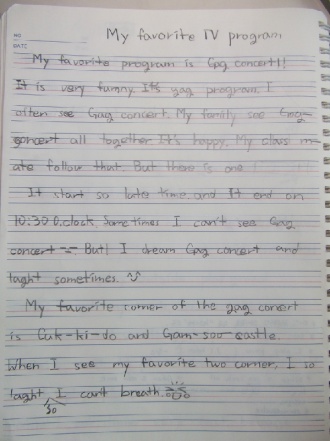 NO
DATE
My favorite TV program
My favorite program is Gag concert!!
It is very funny. It's gag program. I
often see Gag concert. My family see Gag
concert all together It's happy. My class m-
ate follow that. But there is one
It start so late time. and It end on
10:30 O,clock. Sometimes I can't see Gag
concert But! I dream Gag concert and
laght sometimes.
My favorite corner of the gag concert
is Guk-ki-do and Gam-soo castle.
When I see my favorite two corner, I so
laght I can't breath.
so